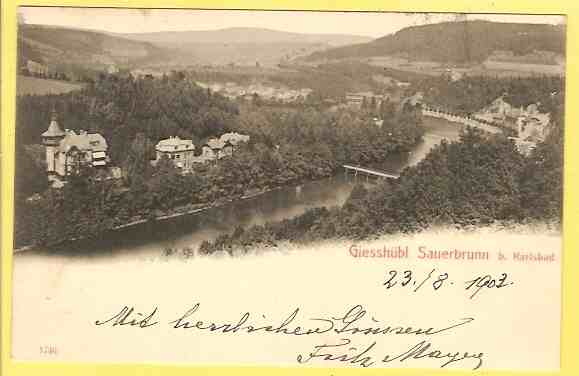 Giesshübl Sauerbrunn b. Karlsbad.
23./8. 1903.
Mit herzlichen Grüssen
Fritz Mayer